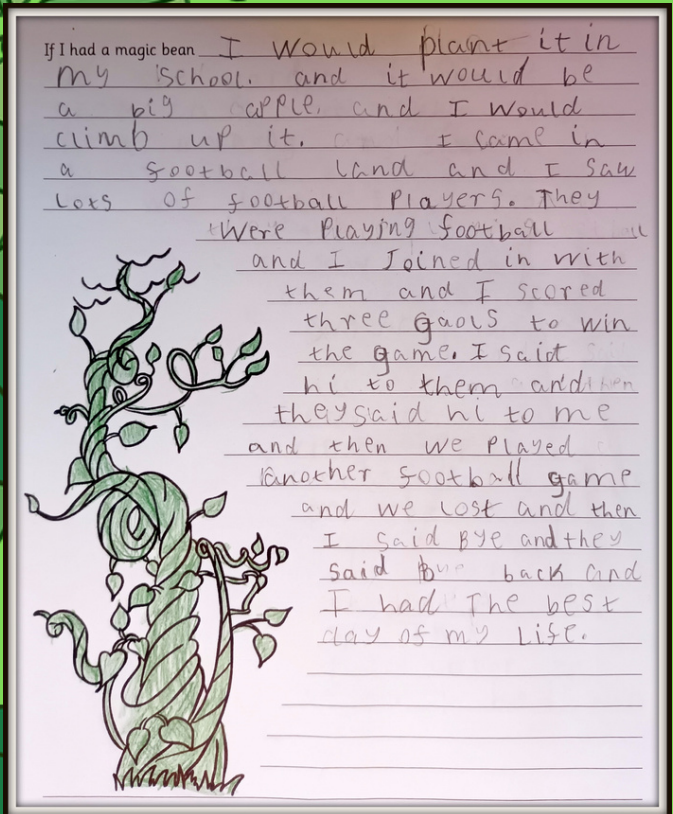 If I had a magic bean I would plant it in
my school. and it would be
a big apple. and I would
climb up it. I came in
a football land and I saw
Lots of football players. They
were playing football
and I Joined in with
them and I scored
three gaols to win
the game. I said
hi to them and
they said hi to me
and then we played
another football game
and we lost and then
I said Bye and they
said back and
I had The best
day of my Life.